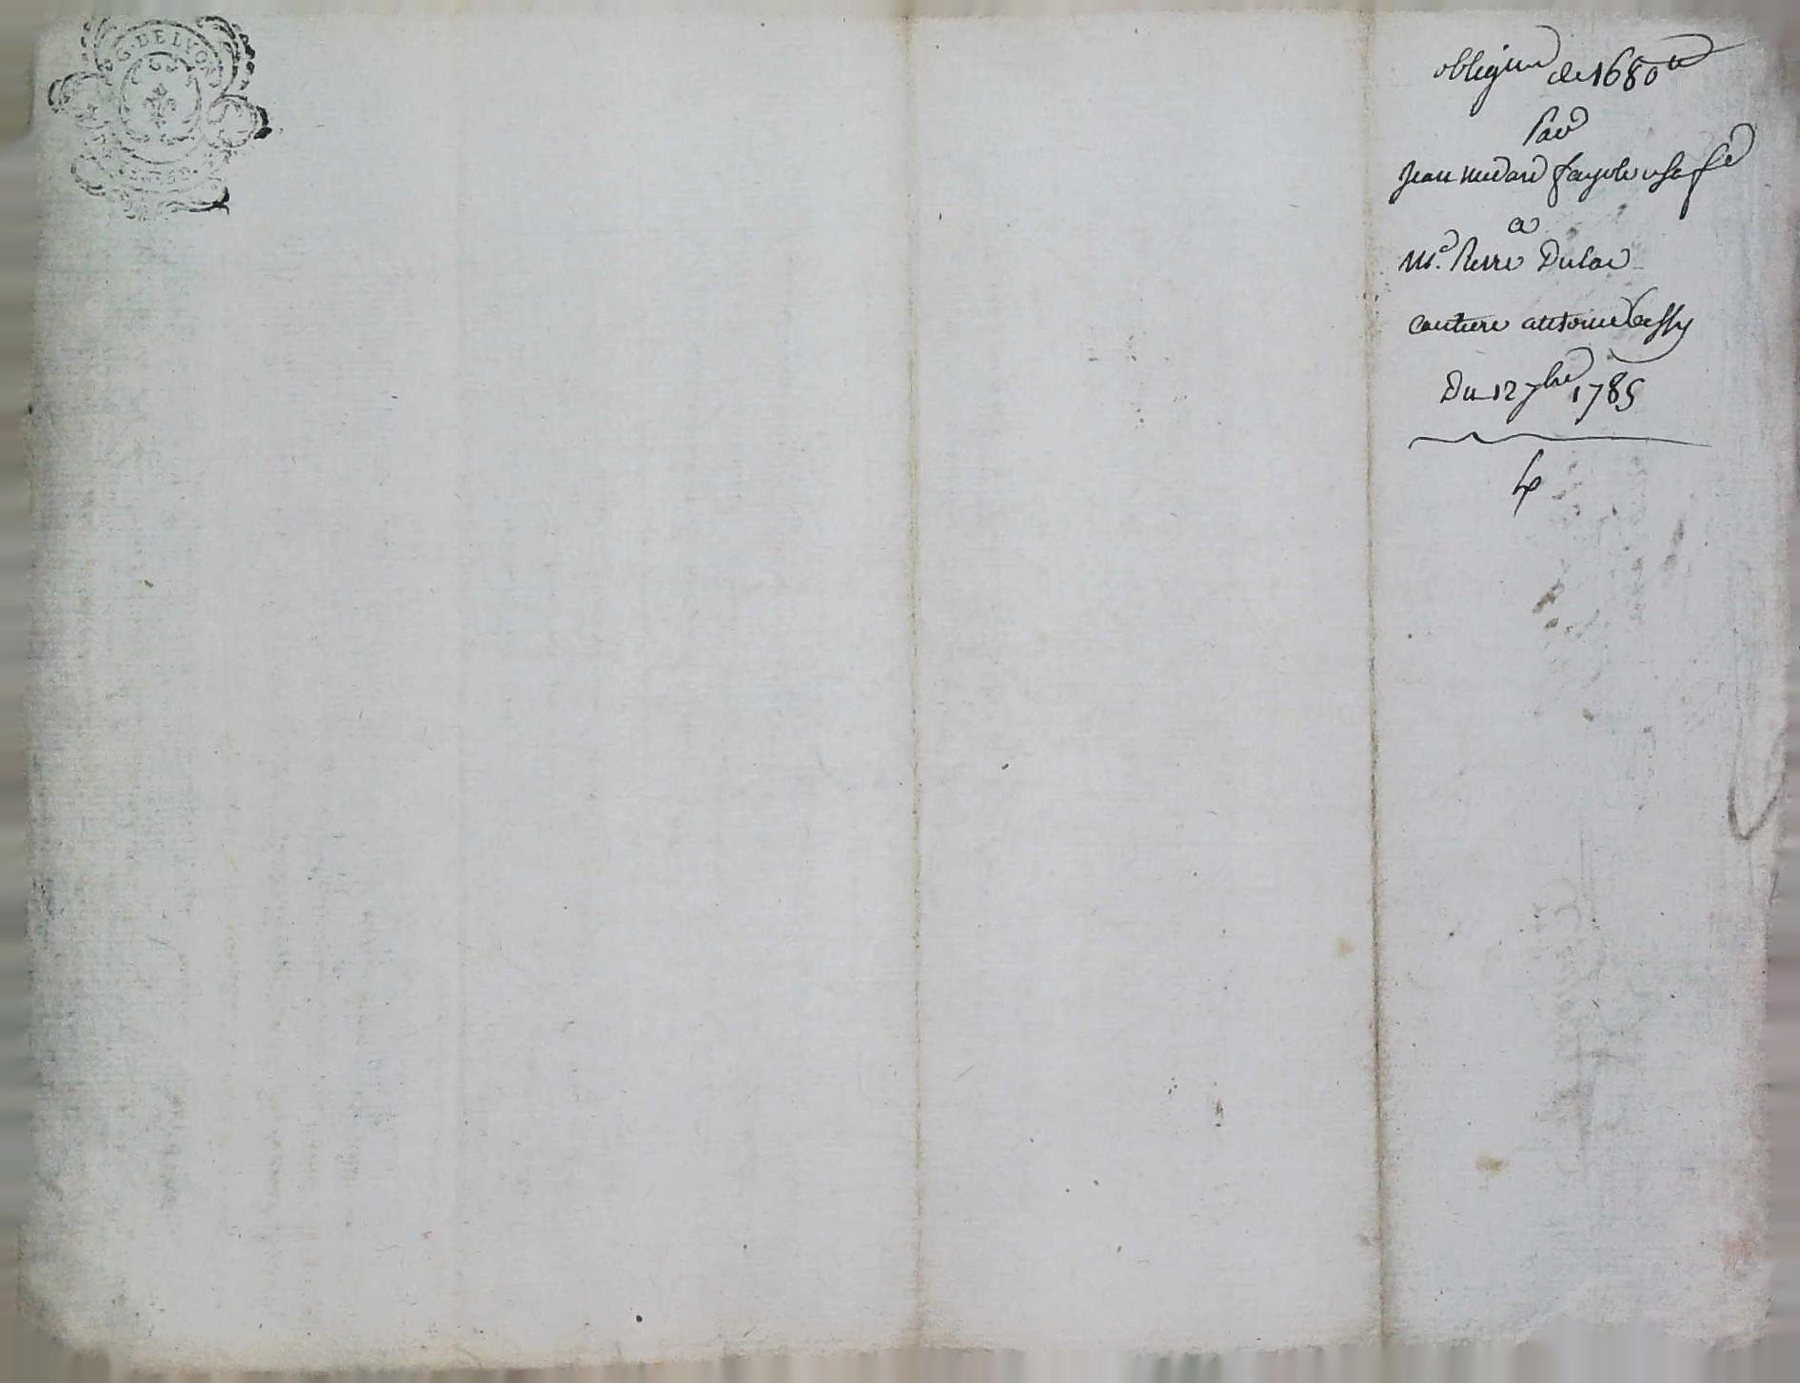 G. DE LYON
obligon de 1680 tt
Par
Jean medard fayole & Sa fe
a
Me. Pierre Dulac
contere antoine bessy
Du 12 7bre 1785